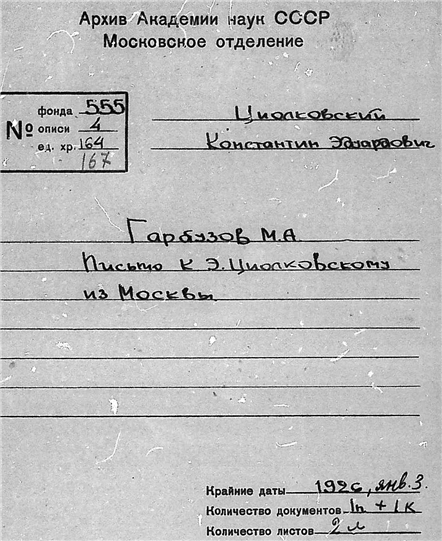 Архив Академии наук СССР
Московское отделение
№
фонда 555
описи 4
ед. хр. 164
167
Циолковский
Константин Эдуардович
Гарбузов М.А.
Письмо К Э. Циолковскому
из Москвы
Крайние даты 1926, янв. 3.
Количество документов 1п + 1к
Количество листов 2 л